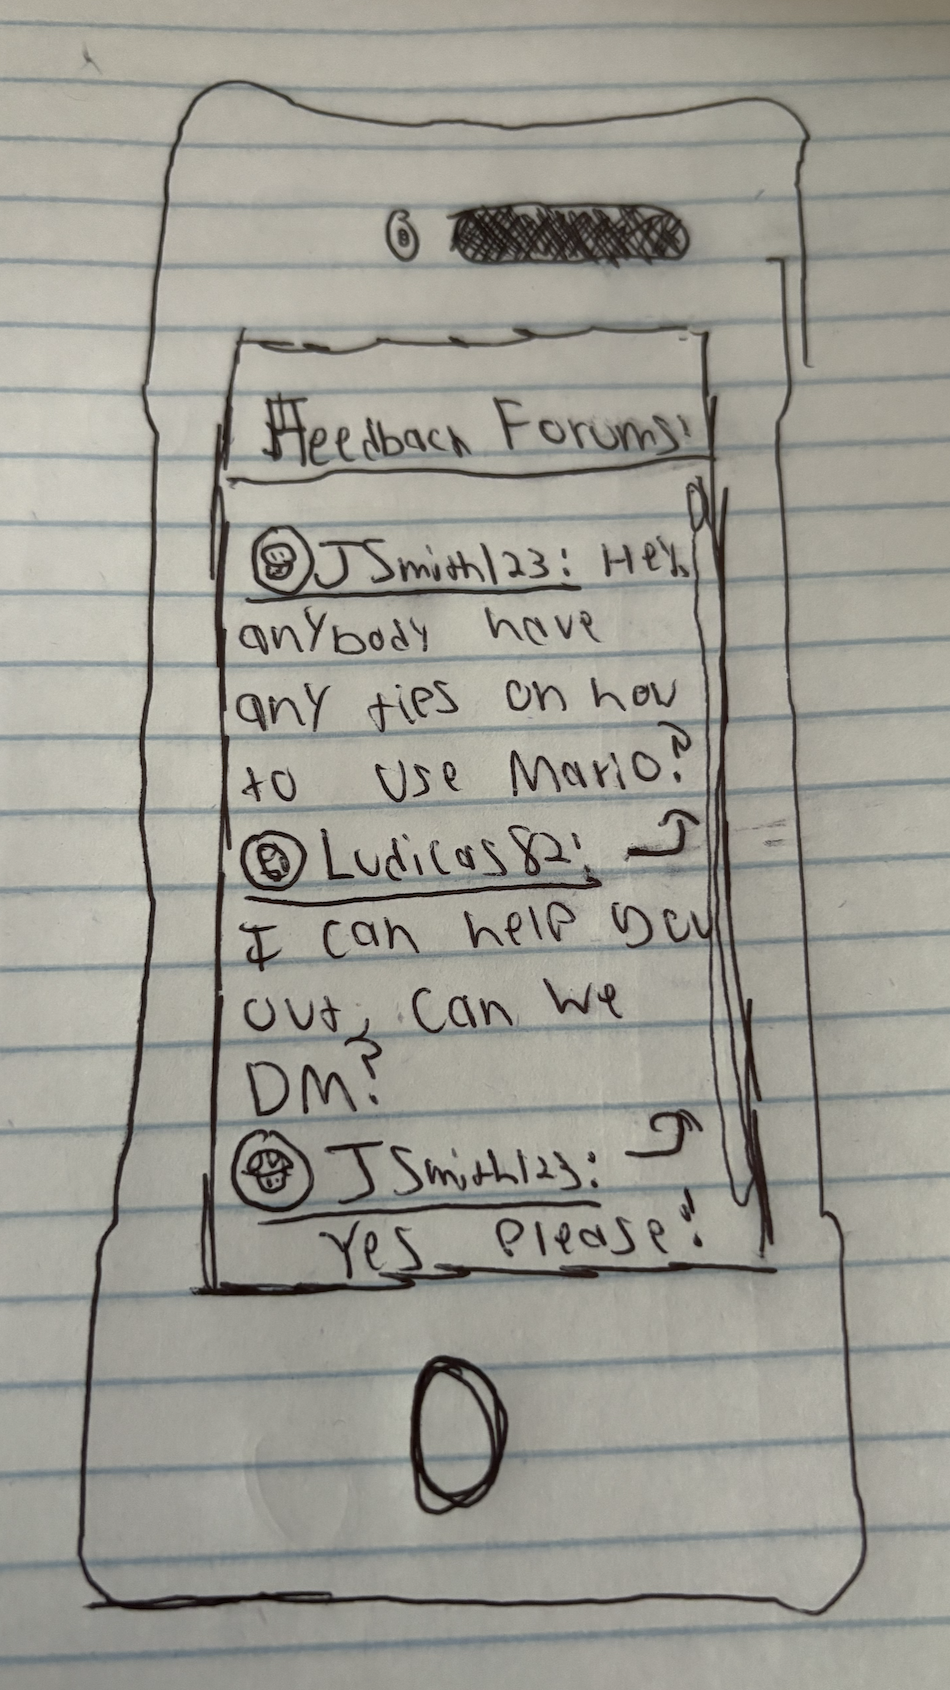 Feedback Forums:
JSmith123: Hey,
anybody have
any ties on how
to use Mario?
Ludicas82:
I can help you
out, can we
DM?
JSmith123:
Yes Please!